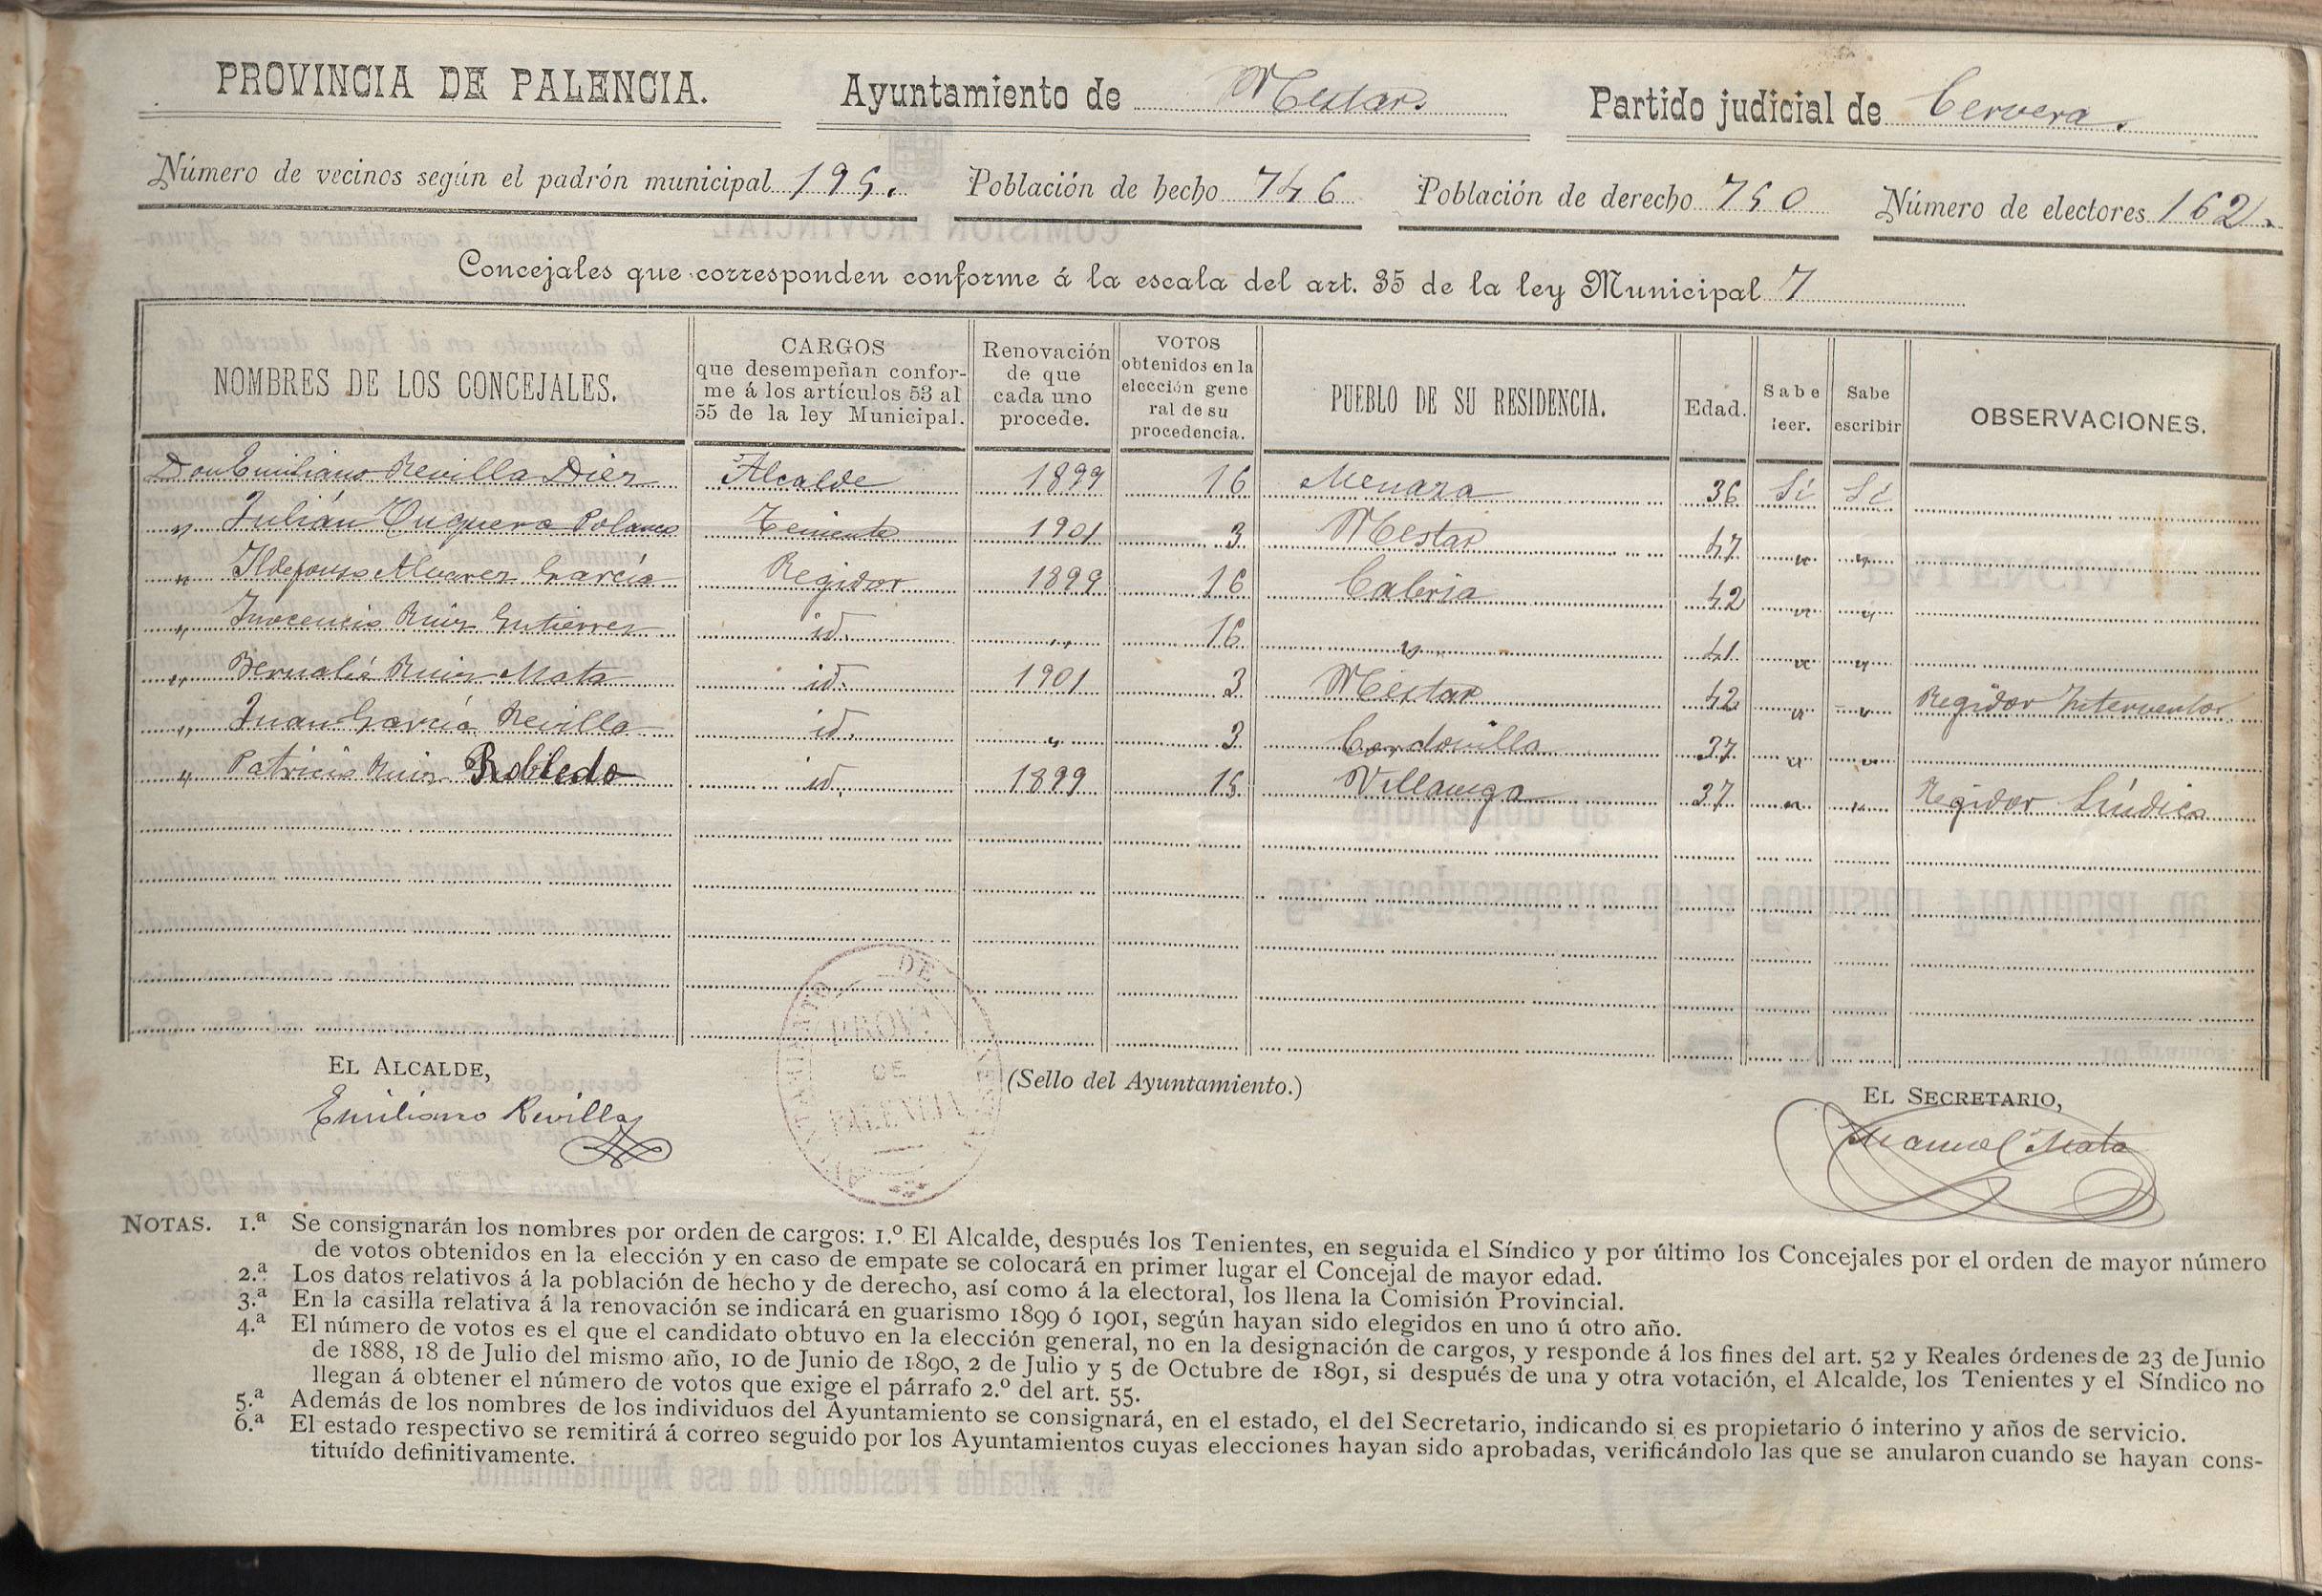 PROVINCIA DE PALENCIA. Ayuntamiento de Nestar. Partido judicial de Cervera.
Número de vecinos según el padrón municipal 195. Población de hecho 746 Población de derecho 750 Número de electores 162.
Concejales que corresponden conforme á la escala del art. 35 de la ley Municipal 7
NOMBRES DE LOS CONCEJALES. CARGOS que desempeñan confor- me á los artículos 53 al 55 de la ley Municipal. Renovación de que cada uno procede. VOTOS obtenidos en la elección gene ral de su procedencia. PUEBLO DE SU RESIDENCIA. Edad. Sabe leer. Sabe escribir OBSERVACIONES.
Don Emiliano Revilla Diez Alcalde 1899 16 Menaza 36 Sí Sí
" Julián Polanco Teniente 1901 3 Nestar 47 " "
" Ildefonso Alvarez García Regidor 1899 16 Cabria 42 " "
" Inocencio Ruiz Gutiérrez id. " 16 " 41 " "
" Bernabé Ruiz Mata id. 1901 3 Nestar 42 " " Regidor Interventor
" Juan García Revilla id. " 3 Cordovilla 37 " "
" Patricio Ruiz Robledo id. 1899 15 Villanuga 37 " " Regidor Síndico
EL ALCALDE,
(Sello del Ayuntamiento.)
EL SECRETARIO,
Emiliano Revilla
Manuel Mata
DE
PROVª
DE
PALENCIA
NOTAS. 1.ª Se consignarán los nombres por orden de cargos: 1.º El Alcalde, después los Tenientes, en seguida el Síndico y por último los Concejales por el orden de mayor número
de votos obtenidos en la elección y en caso de empate se colocará en primer lugar el Concejal de mayor edad.
2.ª Los datos relativos á la población de hecho y de derecho, así como á la electoral, los llena la Comisión Provincial.
3.ª En la casilla relativa á la renovación se indicará en guarismo 1899 ó 1901, según hayan sido elegidos en uno ú otro año.
4.ª El número de votos es el que el candidato obtuvo en la elección general, no en la designación de cargos, y responde á los fines del art. 52 y Reales órdenes de 23 de Junio
de 1888, 18 de Julio del mismo año, 10 de Junio de 1890, 2 de Julio y 5 de Octubre de 1891, si después de una y otra votación, el Alcalde, los Tenientes y el Síndico no
llegan á obtener el número de votos que exige el párrafo 2.º del art. 55.
5.ª Además de los nombres de los individuos del Ayuntamiento se consignará, en el estado, el del Secretario, indicando si es propietario ó interino y años de servicio.
6.ª El estado respectivo se remitirá á correo seguido por los Ayuntamientos cuyas elecciones hayan sido aprobadas, verificándolo las que se anularon cuando se hayan cons-
tituído definitivamente.